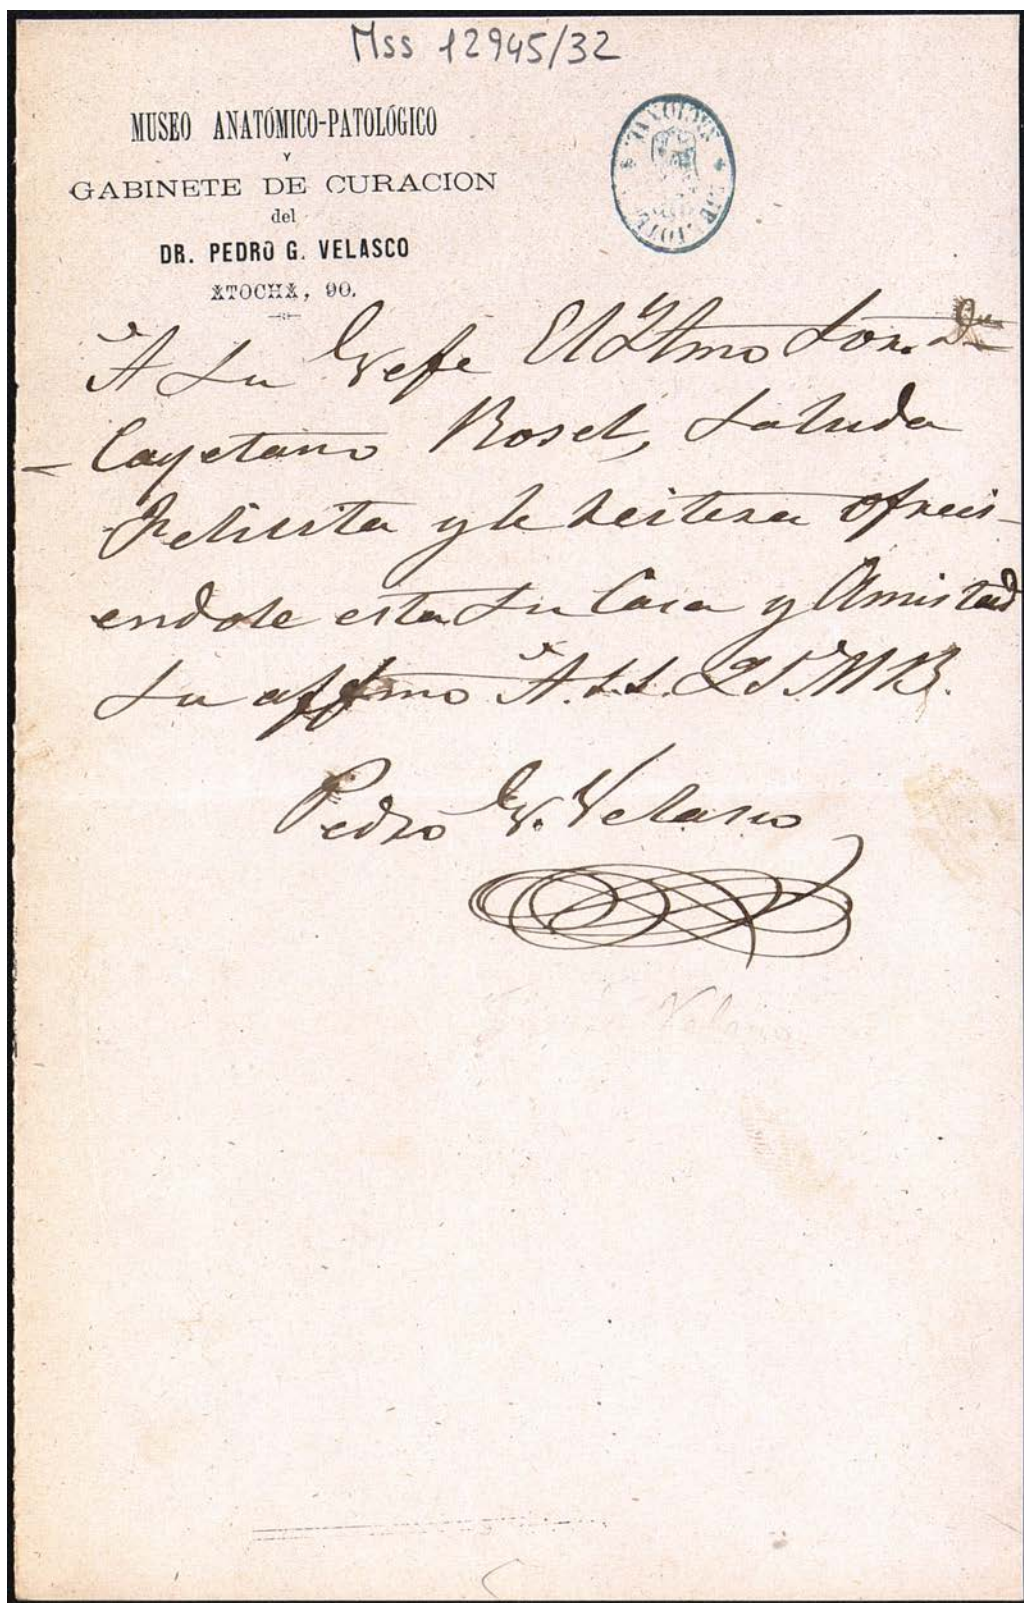 Mss 12945/32
MUSEO ANATÓMICO-PATOLÓGICO
Y
GABINETE DE CURACION
del
DR. PEDRO G. VELASCO
ATOCHA, 90.
A Su Gefe El Ylmo Sor. Dn
Cayetano Rosel, Saluda
Felicita y le Reitera ofreci-
endole esta Su Casa y Amistad
Su affmo A. S.S. Q S M B.
Pedro G. Velasco
Velasco